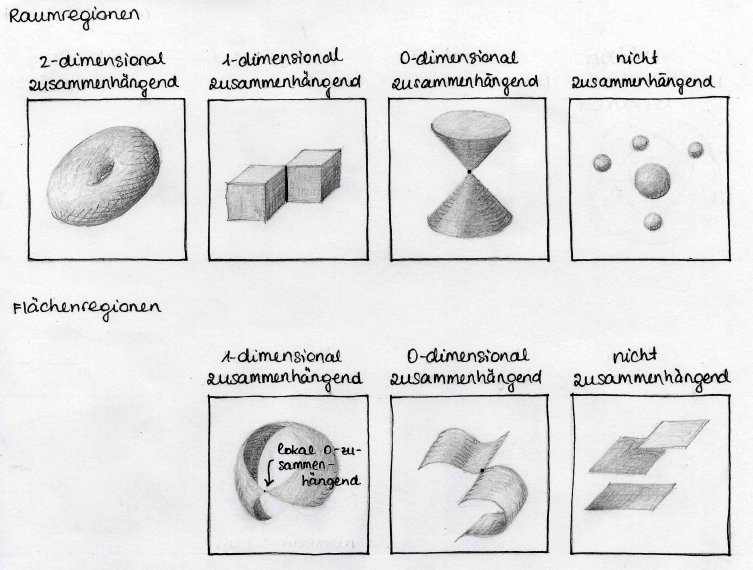 Raumregionen
2-dimensional
zusammenhängend
1-dimensional
zusammenhängend
0-dimensional
zusammenhängend
nicht
zusammenhängend
Flächenregionen
1-dimensional
zusammenhängend
0-dimensional
zusammenhängend
nicht
zusammenhängend
lokal 0-zu-
sammen-
hängend